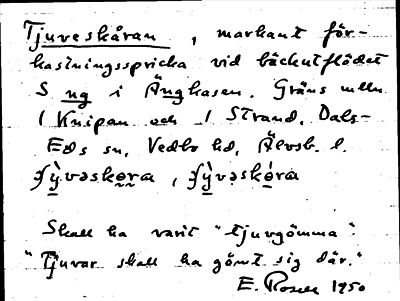 Tjuveskåran, markant för-
kastningsspricka vid bäckutflödet
S ng i Änghasen. Gräns mlln
/ Knipan och / Strand, Dals-
Eds sn, Vedbo hd, Älvsb. l.
Skall ha varit "tjuvgömma".
"Tjuvar skall ha gömt sig där."
E. Rosell 1950